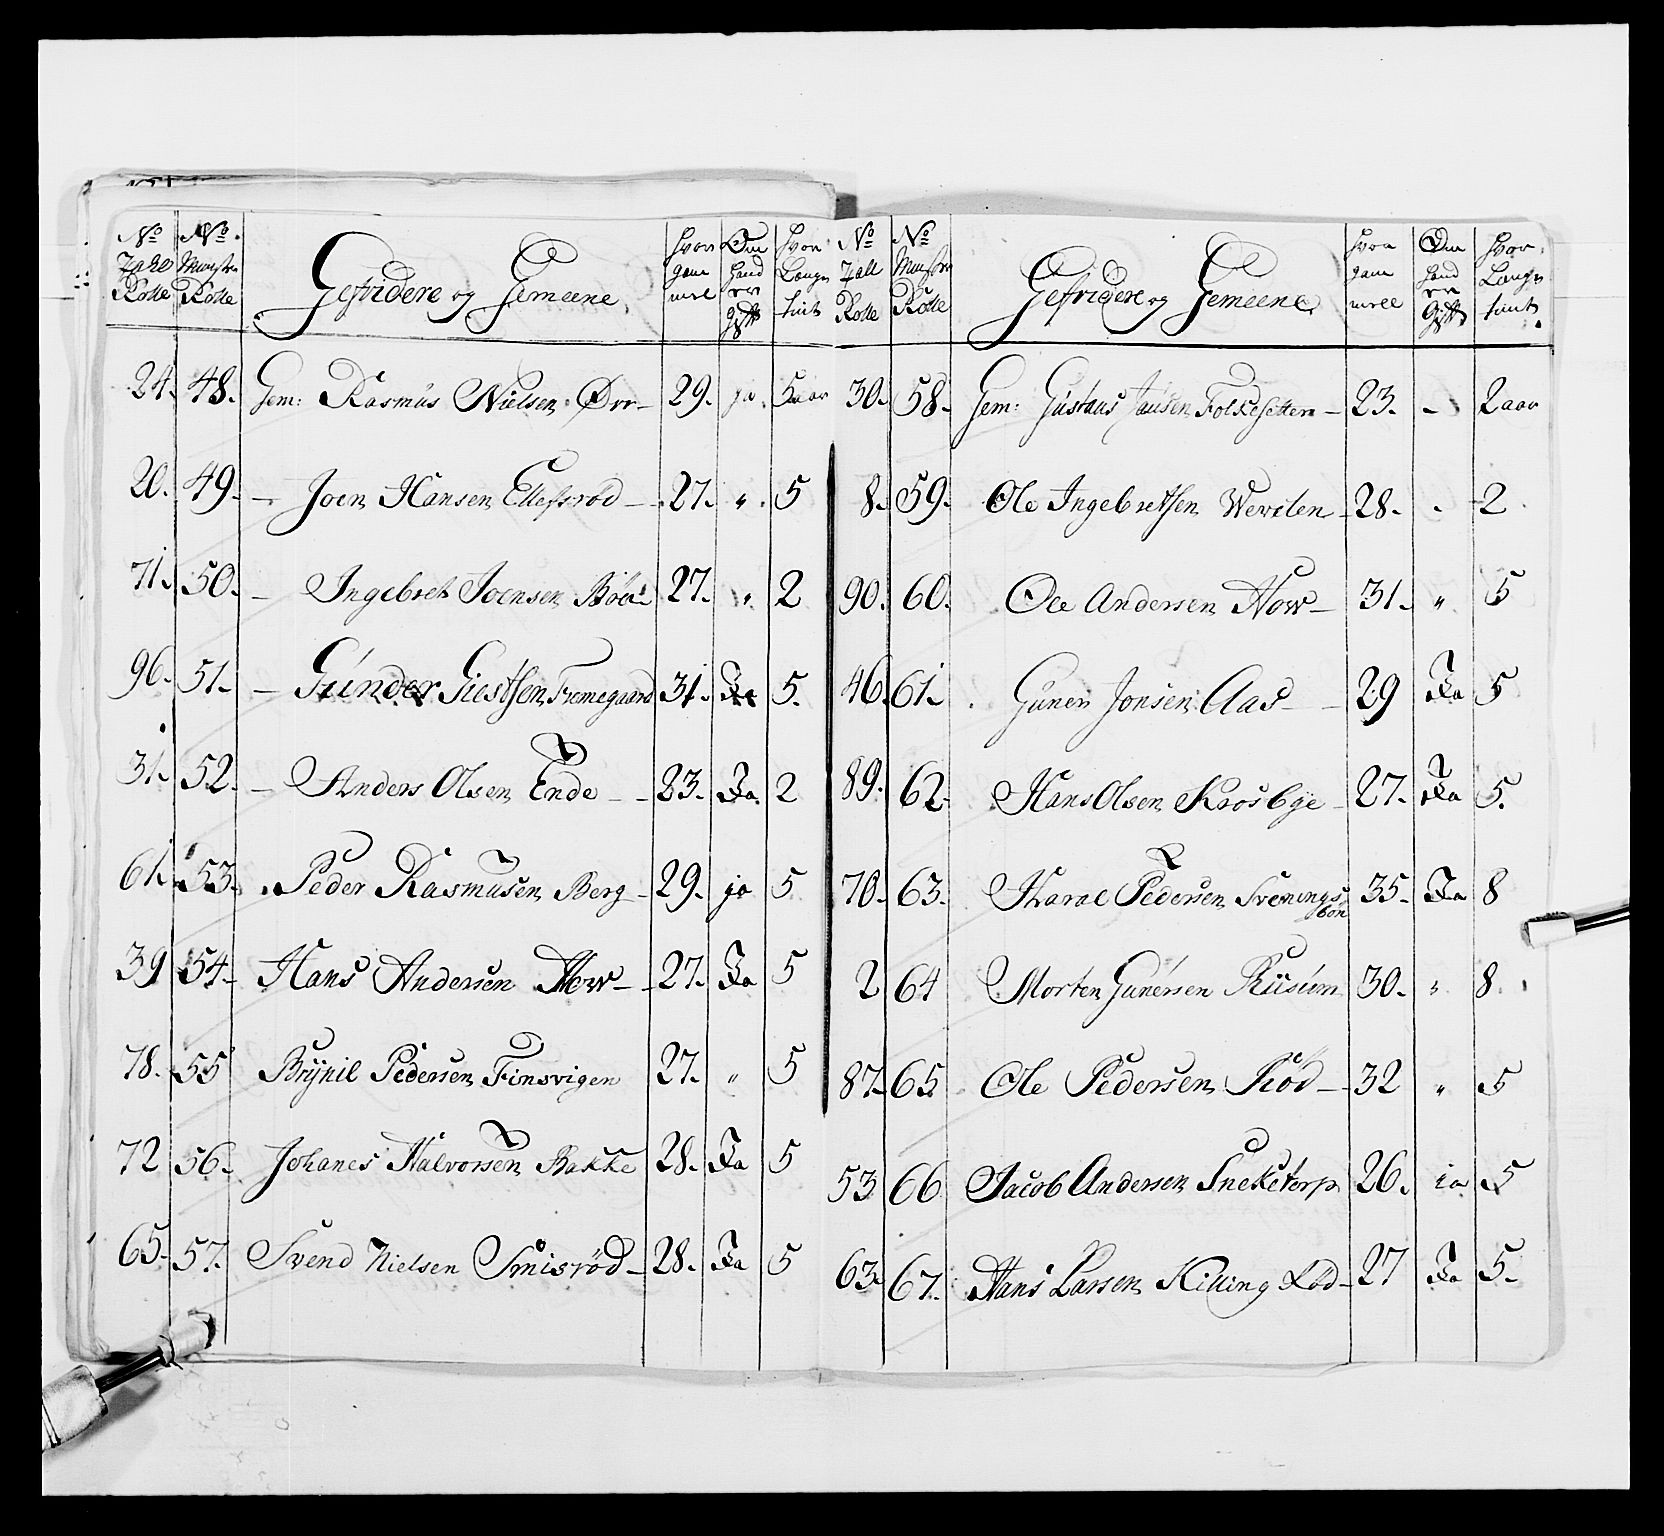 No Zahl Rolle | No Munster Rolle | Gefridere og Gemeene | hvor gam mel | Om hand er gift | hvor Længe tient
24. 48. Gem: Rasmus Nielsen Örr 29. ja. 5 aar
20. 49. - Joen Hansen Ellefsröd 27. " 5
71. 50. - Ingebret Joensen 27. " 2
96. 51. - Gunder Giertsen Fremegaard 31. Ja 5.
31. 52. - Anders Olsen Ende 23. Ja 2
61. 53. Peder Rasmusen Berg 29. ja 5
39 54. Hans Andersen How 27. Ja 5
78. 55 Brynil Pedersen Finsvigen 27. " 5
72 56. Johanes Halvorsen Bakke 28. Ja 5
65. 57. Svend Nielsen Smisröd 28. Ja 5
No Zall Rolle | No Munster Rolle | Gefridere og Gemeene | hvor gam mell | Om hand er Gift | hvor Længe tient
30. 58. Gem: Gustaus Jansen Folkesetten 23. - 2 aar
8. 59. Ole Ingebretsen Wevelen 28. . 2
90. 60. Ole Andersen How 31. " 5
46. 61. Guner Jonsen Aas 29 Ja 5
89. 62. Hans Olsen Krosbye 27. Ja 5.
70. 63. Haral Pedersen Svenings
bön 35. Ja 8
2 64 Morten Gunersen Riisum 30. " 8.
87. 65. Ole Pedersen Röd 32 " 5
53 66 Jacob Andersen Sneketorp 26. ia 5
63. 67. Hans Larsen Killing Röd 27 Ja 5.